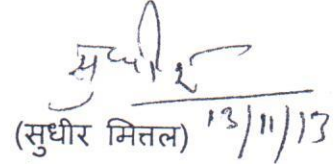 सुधीर
(सुधीर मित्तल) 13/11/13